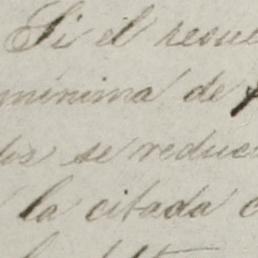 Si el resu
minima de
se reduc
la citada